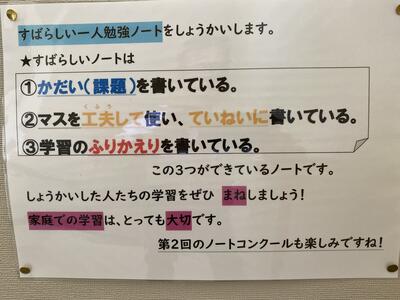 すばらしい一人勉強ノートをしょうかいします。
★すばらしいノートは
①かだい(課題)を書いている。
②マスを工夫して使い、ていねいに書いている。
③学習のふりかえりを書いている。
この3つができているノートです。
しょうかいした人たちの学習をぜひ まねしましょう!
家庭での学習は、とっても大切です。
第2回のノートコンクールも楽しみですね!